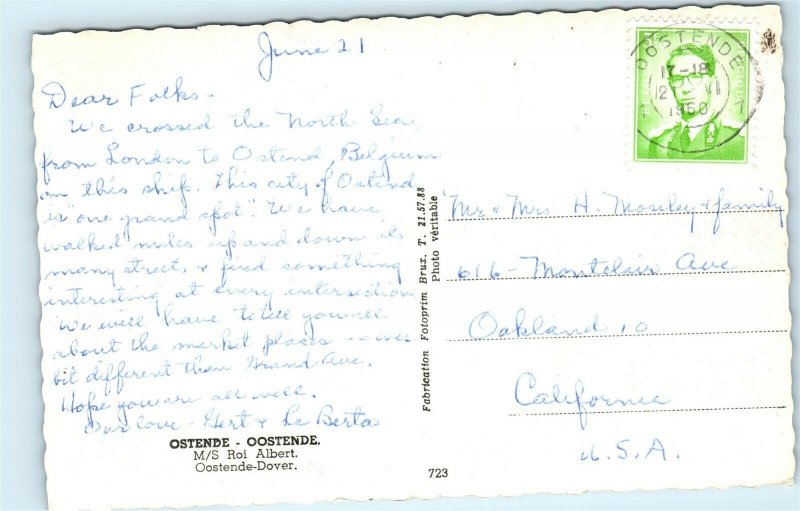 June 21
Dear Folks -
We crossed the North Sea,
from London to Ostend, Belgium
on this ship. This city of Ostend
is "one grand spot". We have
walked miles up and down its
many streets & find something
interesting at every intersection.
We will have to tell you all
about the market places - a wee
bit different than Grand Ave.
Hope you are all well.
Our love - Gert & Le Berta
OSTENDE - OOSTENDE.
M/S Roi Albert.
Oostende-Dover.
723
Fabrication Fotoprim Brux. T. 21.57.88
Photo véritable
OOSTENDE
17-18
12 VI
1960
Mr & Mrs H. Moseley & family
616 - Montclair Ave
Oakland 10
California
U.S.A.